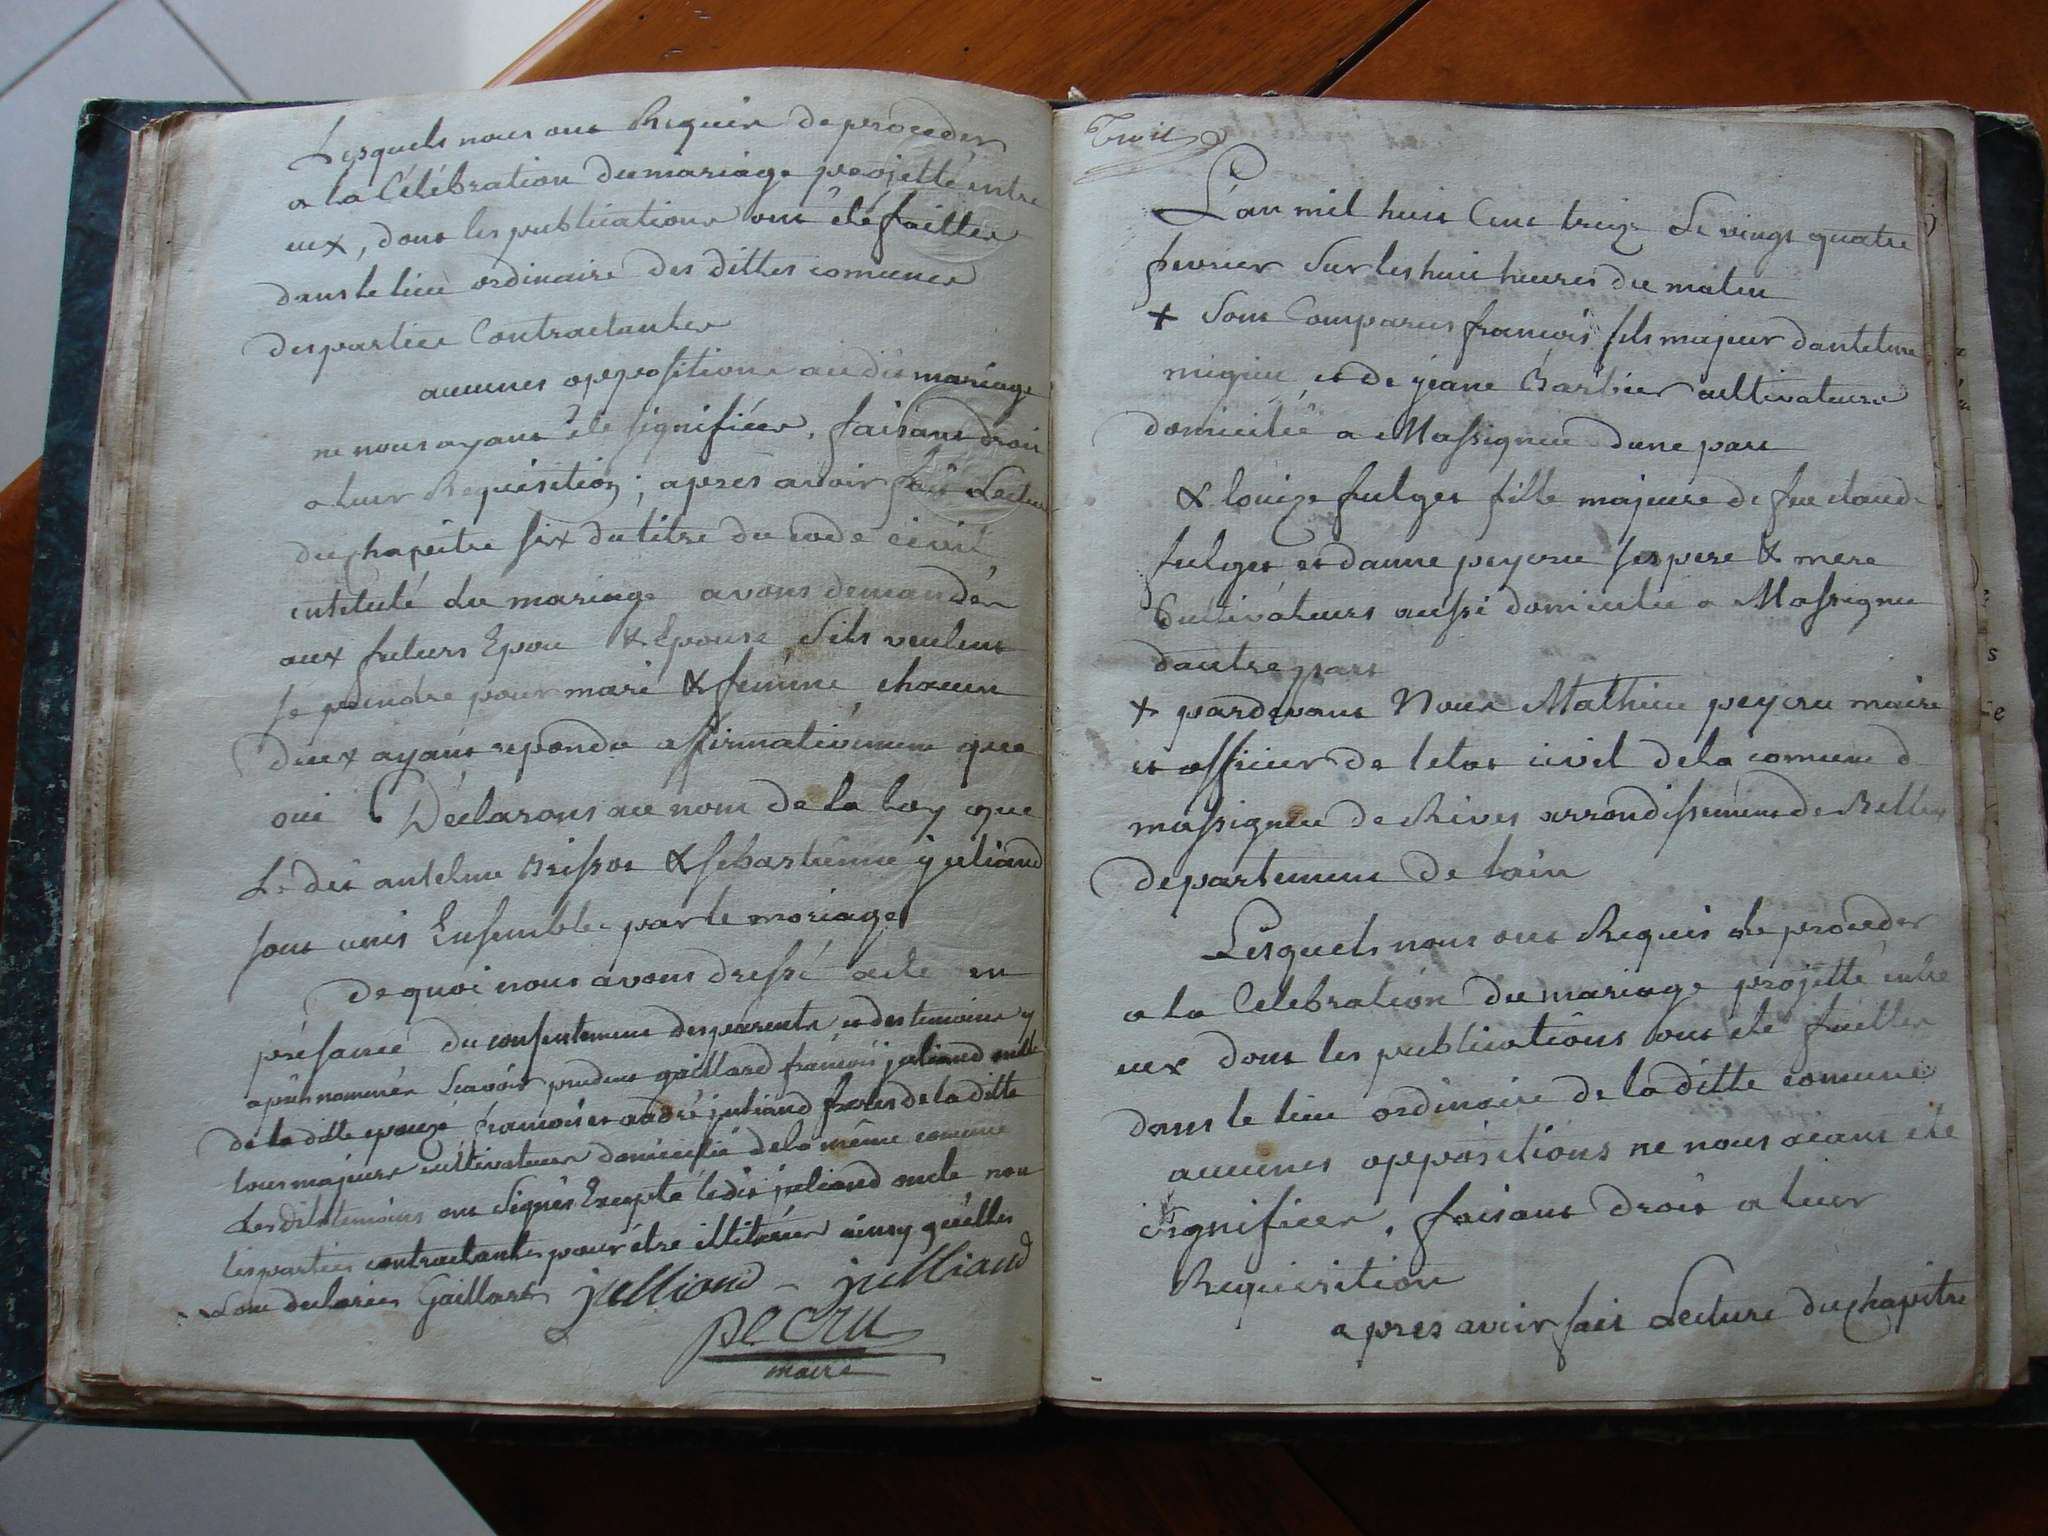 Lesquels nous ont Requin de proceder
a la Célébration du mariage projetté entre
eux, dont les publications ont été faittes
dans le lieu ordinaire des dittes comunes
des parties Contractantes
aucunes oppositions audit mariage
ne nous ayant été signifiées, faisant droit
a leur Requisition; après avoir fait Lecture
du chapitre six du titre du code civil
intitulé du mariage avons demandér
aux futurs Epou & Epouse Sils veulent
se prendre pour mari & femme, chacun
deux ayant repondu affirmativement que
oui Déclarons au nom de la loy que
Le dit antelme Brissot & sébastienne juliand
sont unis Ensemble par le mariage
de quoi nous avons dressé acte en
présance du consentement des parents et des temoins y
après nommés Scavoir prudent gaillard françois juliand oncle
de la ditte epouze françois et andré juliand freres de la ditte
tous majeurs cultivateurs domicilié de la même comune
Les dits temoins ont Signés Excepté ledit juliand oncle non
les parties contractantes pour être illitérées ainsy quelles
Lont declarées Gaillard julliand - julliand
pecru
maire
Troit
L'an mil huit Cent treize Le vingt quatre
fevrier Sur les huit heures du matin
+ Sont Comparus francois fils majeur dantelme
migieu et de jeane Barbier cultivateurs
domicilié a Massignieu dune part
& louize fulget fille majeure de feu claude
fulget et danne peycru ses pere & mere
Cultivateurs aussi domicilié a Massignieu
dautre part
+ pardevant Nous Mathieu peycru maire
et officier de letat civil dela comune d
massignieu de Rives arrondissement de Belley
departement de lain
Lesquels nous ont Requis de proceder
a la Celebration du mariage projetté entre
eux dont les publications ont été faittes
dans le lieu ordinaire de la ditte comune
aucunes oppositions ne nous aiant été
Signifiées, faisant droit a leur
Requisition
apres avoir fait Lecture du chapitre